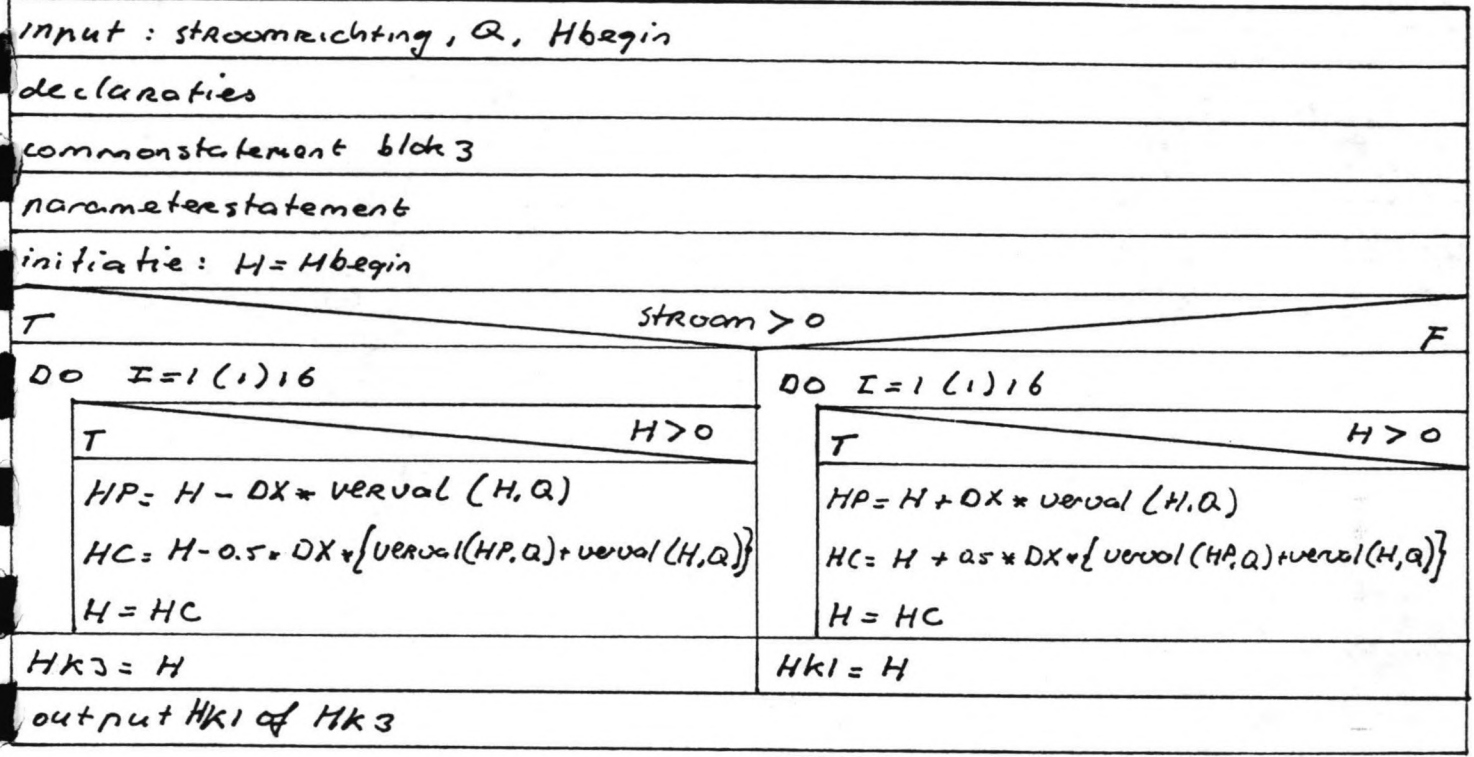 input : stroomrichting, Q, Hbegin
declaraties
commonstatement blok 3
parameterstatement
initiatie: H = Hbegin
T stroom > 0 F
DO I = 1 (1) 16
T H > 0
HP = H - DX * verval (H, Q)
HC = H - 0.5 * DX * {verval (HP, Q) + verval (H, Q)}
H = HC
HK3 = H
DO I = 1 (1) 16
T H > 0
HP = H + DX * verval (H, Q)
HC = H + 0.5 * DX * {verval (HP, Q) + verval (H, Q)}
H = HC
HK1 = H
output HK1 of HK3